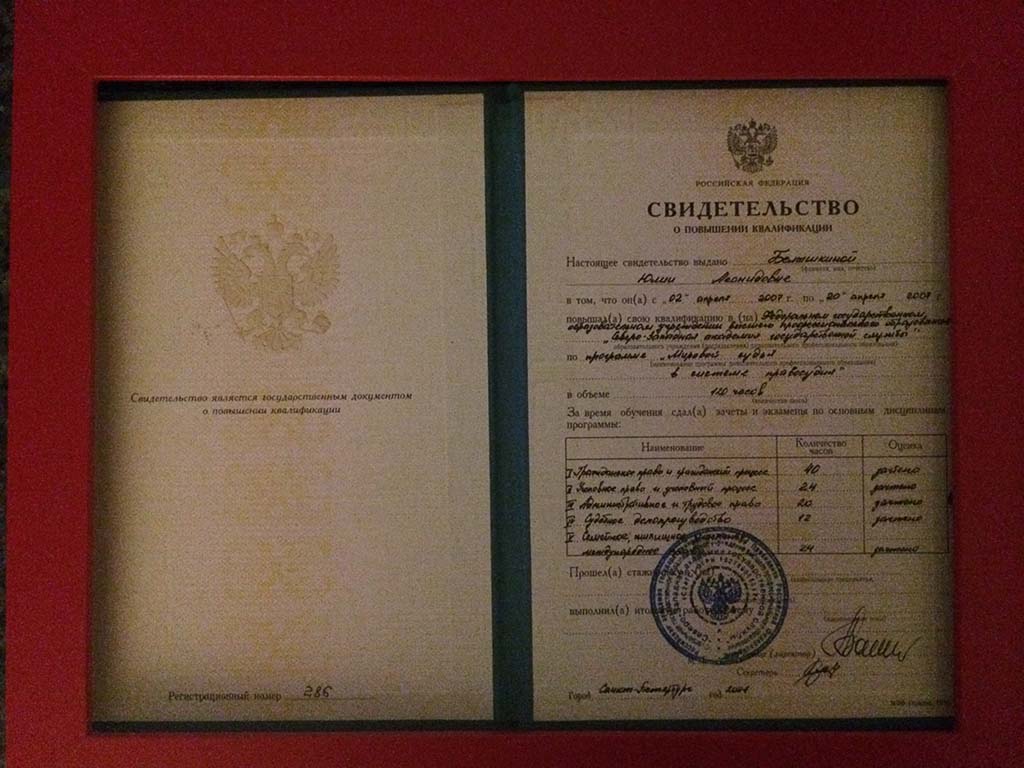 Свидетельство является государственным документом
о повышении квалификации
Регистрационный номер 286
РОССИЙСКАЯ ФЕДЕРАЦИЯ
СВИДЕТЕЛЬСТВО
О ПОВЫШЕНИИ КВАЛИФИКАЦИИ
Настоящее свидетельство выдано
(фамилия, имя, отчество)
Юлии Леонидовне
в том, что он(а) с „02" апреля 2007 г. по „20" апреля 2007 г.
повышал(а) свою квалификацию в (на) Федеральном государственном
образовательном учреждении высшего профессионального образования
„Северо-Западная академия государственной службы"
по программе „Мировой судья
в системе правосудия"
в объеме 120 часов
(количество часов)
За время обучения сдал(а) зачеты и экзамены по основным дисциплинам
программы:
Наименование Количество часов Оценка
I Гражданское право и гражданский процесс 40 зачтено
II Уголовное право и уголовный процесс 24 зачтено
III Административное и трудовое право 20 зачтено
IV Судебное делопроизводство 12 зачтено
V Семейное, жилищное
международное 24 зачтено
Прошел(а)
выполнил(а)
(директор)
Секретарь
Город Санкт-Петербург год 2007